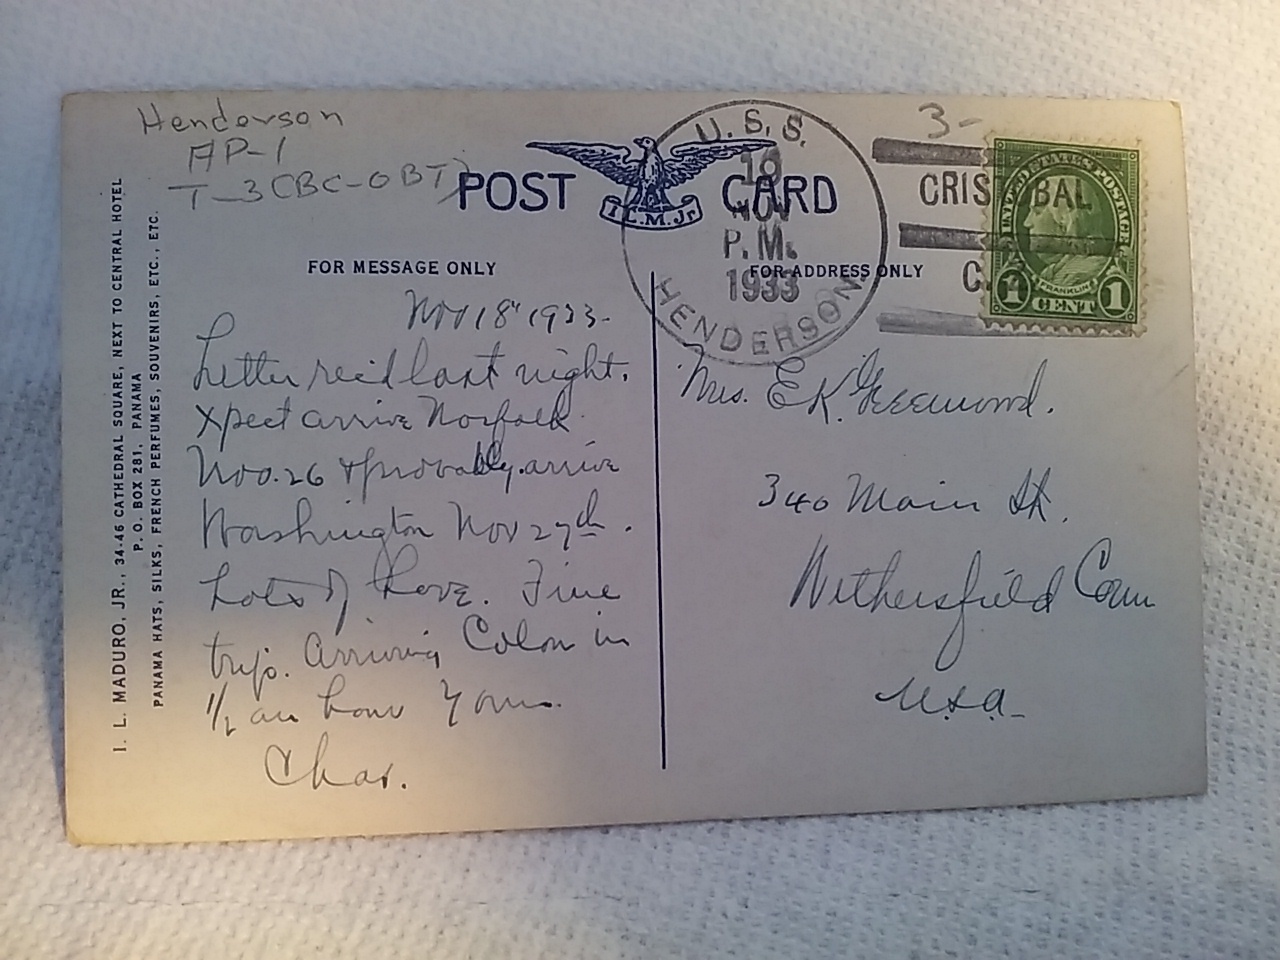 Henderson
AP-1
T-3(BC-OBT)
3-
POST CARD
I. L. M. Jr.
U. S. S.
19
NOV
P. M.
1933
HENDERSON
CRISTOBAL
C.
UNITED STATES POSTAGE
FRANKLIN
1 CENT 1
I. L. MADURO, JR., 34-46 CATHEDRAL SQUARE, NEXT TO CENTRAL HOTEL
P. O. BOX 281, PANAMA
PANAMA HATS, SILKS, FRENCH PERFUMES, SOUVENIRS, ETC., ETC.
FOR MESSAGE ONLY
Nov 18" 1933-
Letter rec'd last night.
Xpect arrive Norfolk
Nov. 26 & probably arrive
Washington Nov 27th.
Lots of Love. Fine
trip. Arriving Colon in
1/2 an hour Yours.
Chas.
FOR ADDRESS ONLY
Mrs. E.K.
340 Main St.
Wethersfield Conn
U.S.A-